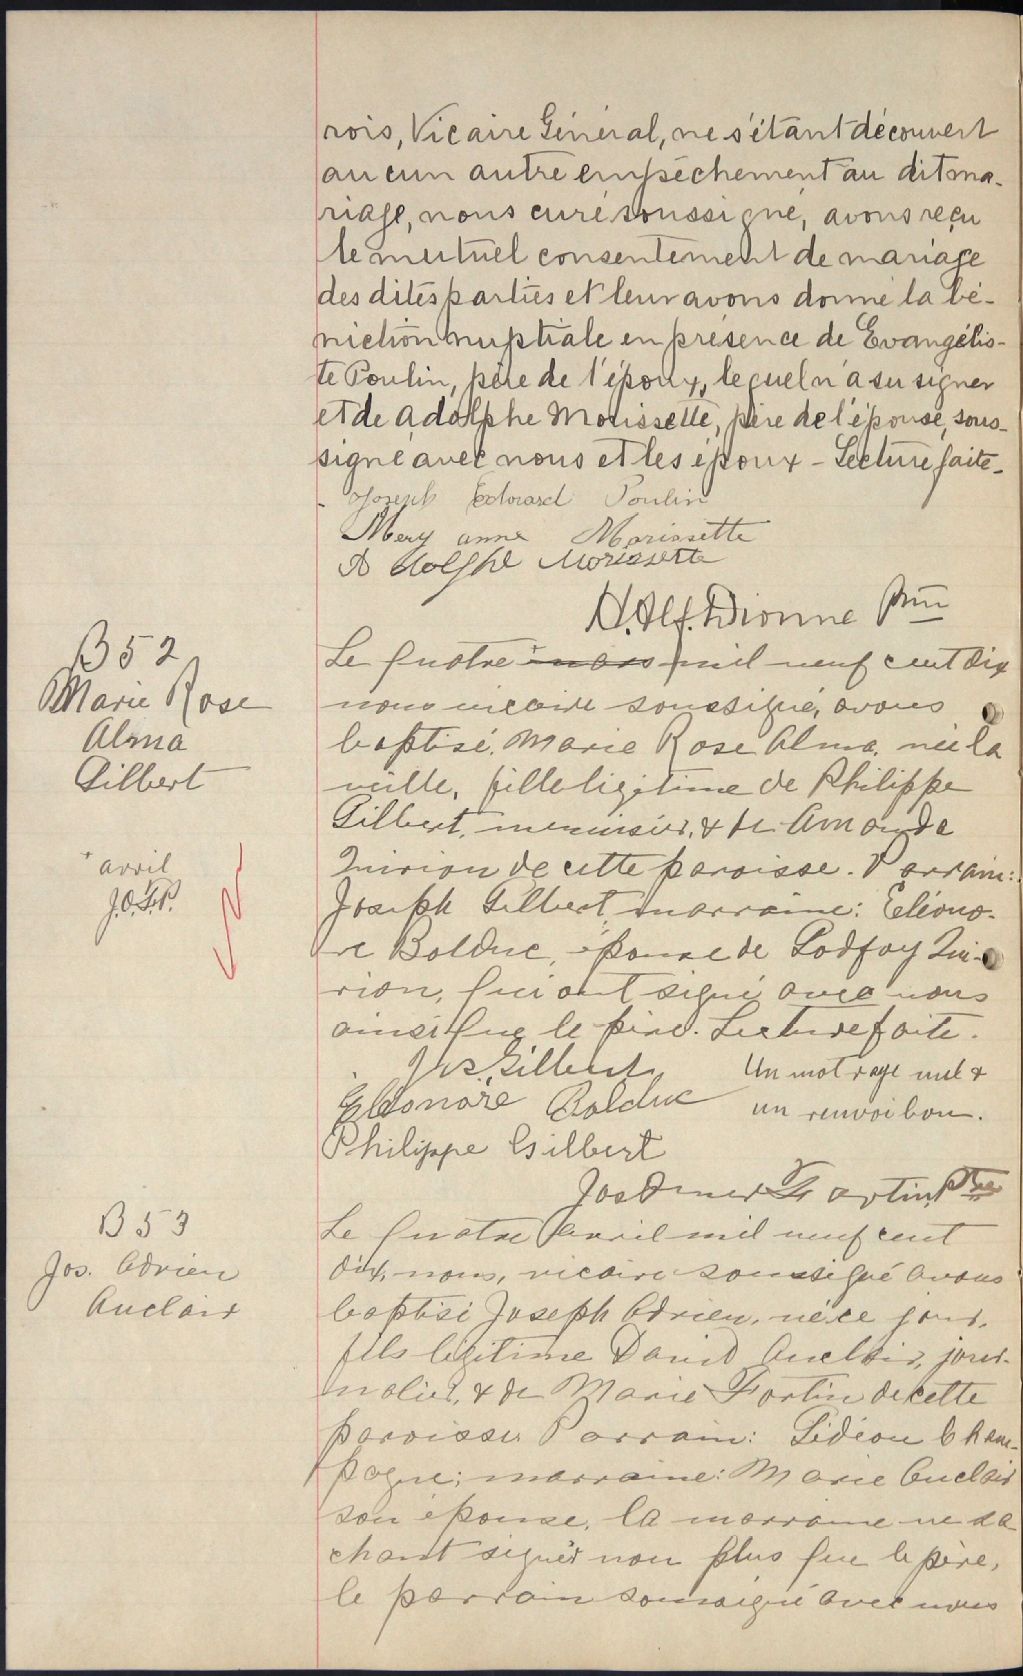 rois, Vicaire Général, ne s'étant découvert
aucun autre empêchement au dit ma-
riage, nous curé soussigné, avons reçu
le mutuel consentement de mariage
des dites parties et leur avons donné la bé-
niction nuptiale en présence de Evangélis-
te Poulin, père de l'époux, lequel n'a su signer
et de Adolphe Morissette, père de l'épouse, sous-
signé avec nous et les époux - Lecture faite -
Joseph Edouard Poulin
Mery anne Morissette
Adolphe Morissette
H. Alf. Dionne Ptre
B 52
Marie Rose
Alma
Gilbert
+ avril
J.O.F.P.
Le quatre + mars mil neuf cent dix
nous vicaire soussigné, avons
baptisé, Marie Rose Alma, née la
veille, fille légitime de Philippe
Gilbert, menuisier, & de Amanda
Quirion de cette paroisse. Parrain:
Joseph Gilbert, marraine: Eléono-
re Bolduc, épouse de Godfroy Qui-
rion, qui ont signé avec nous
ainsi que le père. Lecture faite.
Jos. Gilbert
Un mot rayé nul &
Eléonore Bolduc
un renvoi bon.
Philippe Gilbert
Jos Omer Fortin, Ptre
B 53
Jos. Adrien
Auclair
Le quatre avril mil neuf cent
dix, nous, vicaire soussigné avons
baptisé Joseph Adrien, né ce jour,
fils légitime David Auclair, jour-
nalier, & de Marie Fortin de cette
paroisse. Parrain: Gédéon Cham-
pagne; marraine: Marie Auclair
son épouse, la marraine ne sa-
chant signer non plus que le père,
le parrain soussigné avec nous